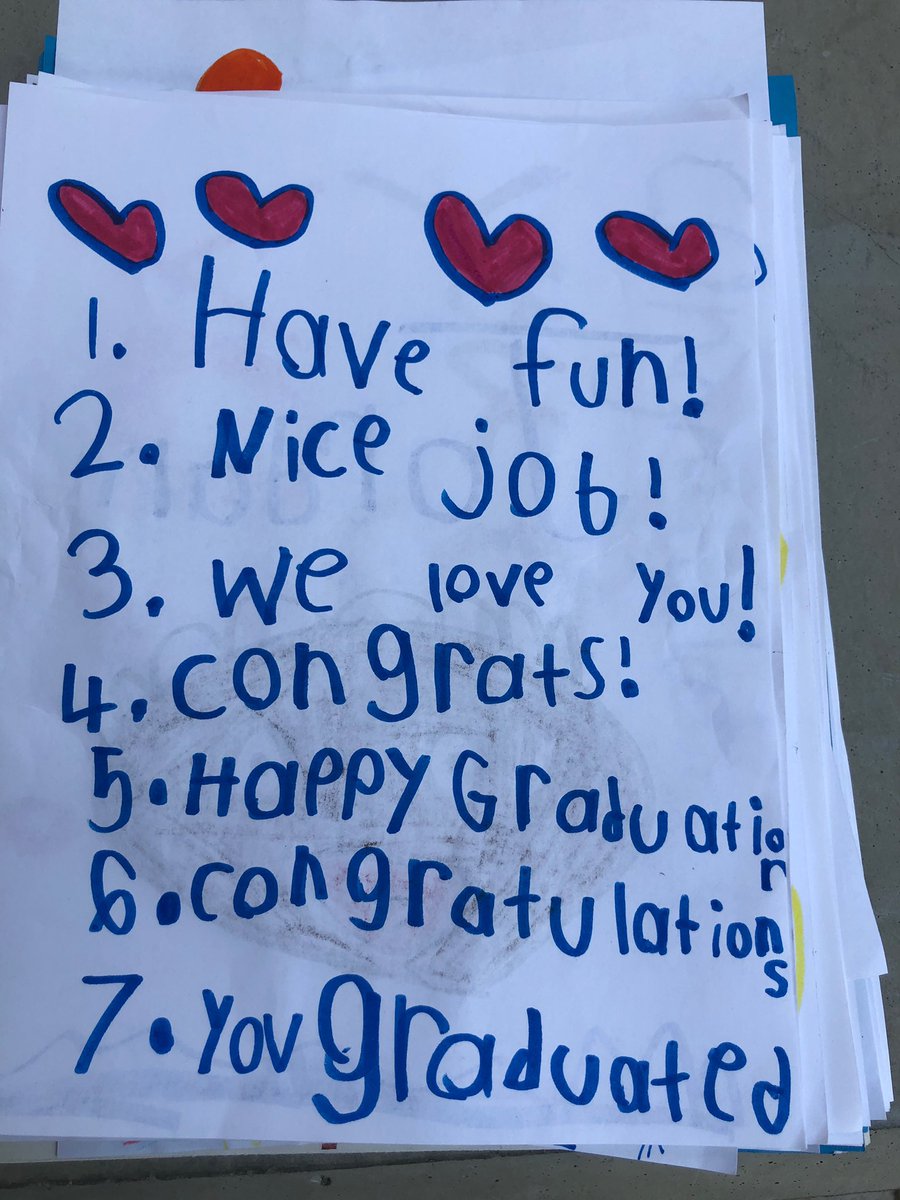 1. Have fun!
2. Nice job!
3. We love you!
4. congrats!
5. Happy Graduation
6. congratulations
7. You graduated